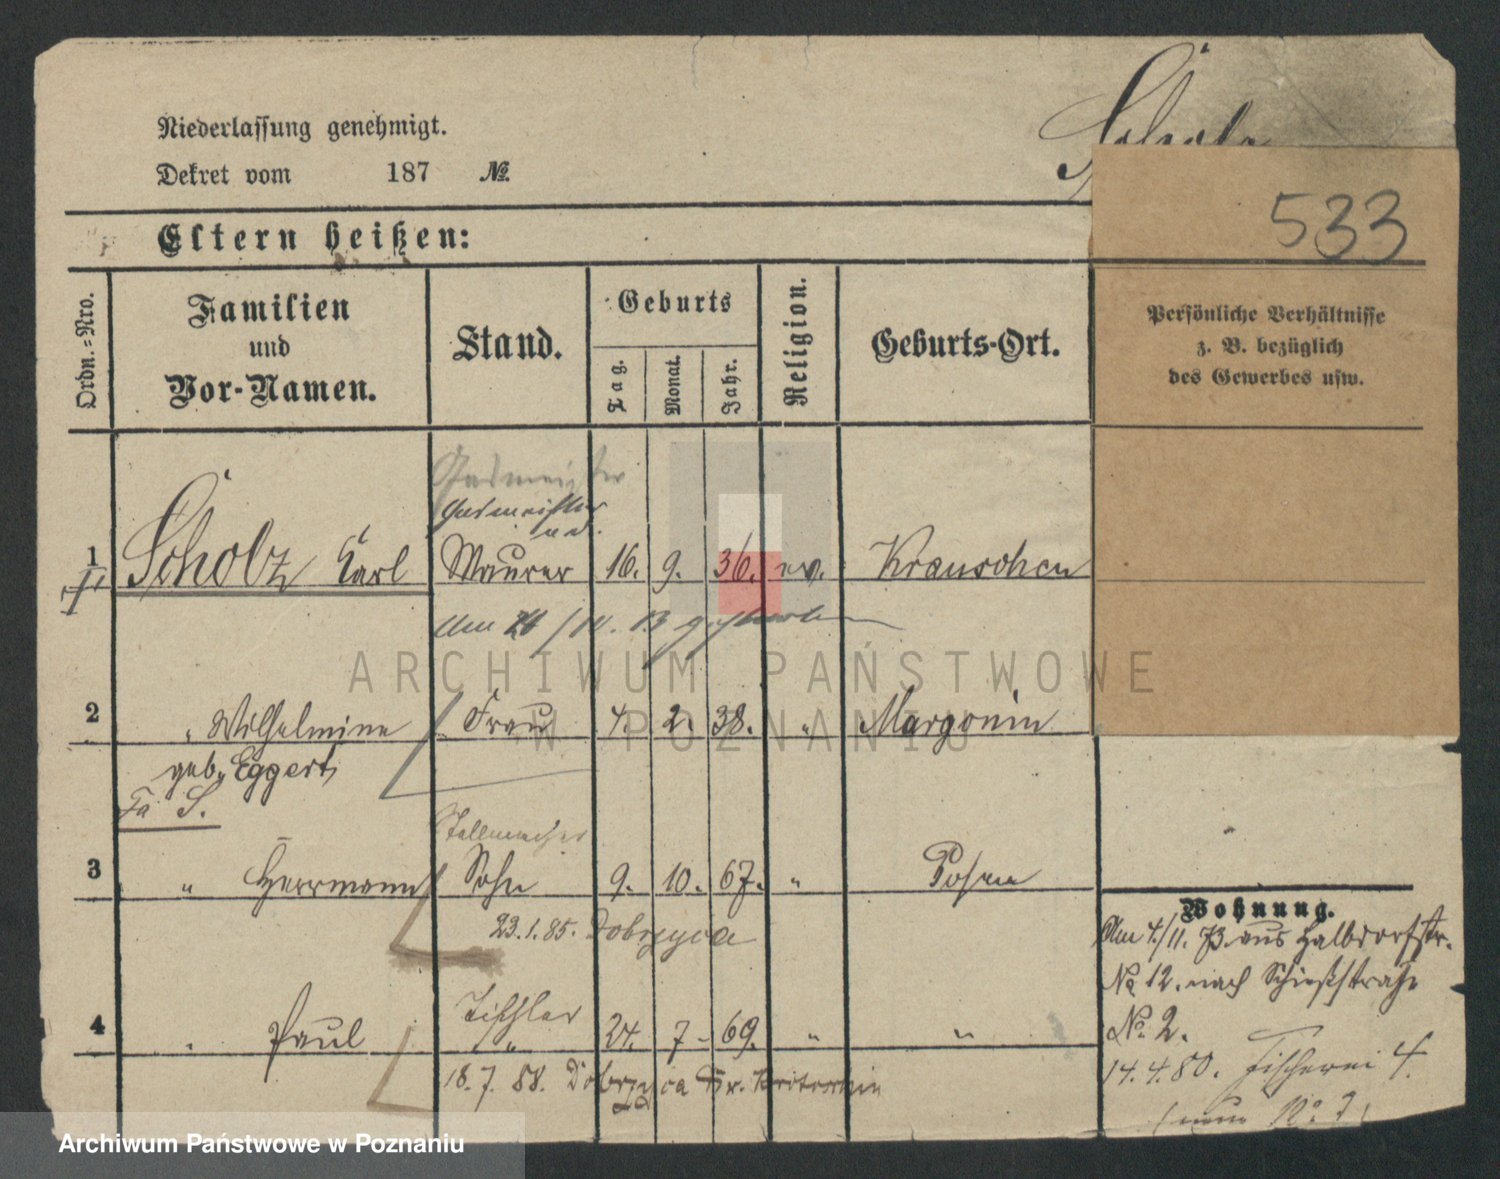 Scholz
Niederlassung genehmigt.
Dekret vom 187 №
533
Eltern heißen:
Ordn.=Nro.
Familien
und
Vor-Namen.
Stand.
Geburts
Tag.
Monat.
Jahr.
Religion.
Geburts-Ort.
Persönliche Verhältnisse
z. B. bezüglich
des Gewerbes usw.
Gasmeister
Gasmeister
1 Scholz Karl Maurer 16. 9. 36. ev. Krauschen
gestorben
2 " Wilhelmine Frau 4. 2. 38. " Margonin
geb. Eggert
Fa S.
Stellmacher
3 " Herrmann Sohn 9. 10. 67. " Posen
23.1.85. Dobrzyca
Tischler
4 " Paul " 24. 7 - 69. " "
18.7.88. Dobrzyca Kr. Krotoschin
Wohnung.
Am 4/11. 73 aus Halbdorfstr.
No 12. nach Schießstraße
No. 2.
14.4.80. Fischerei 4.
ARCHIWUM PAŃSTWOWE
W POZNANIU
Archiwum Państwowe w Poznaniu